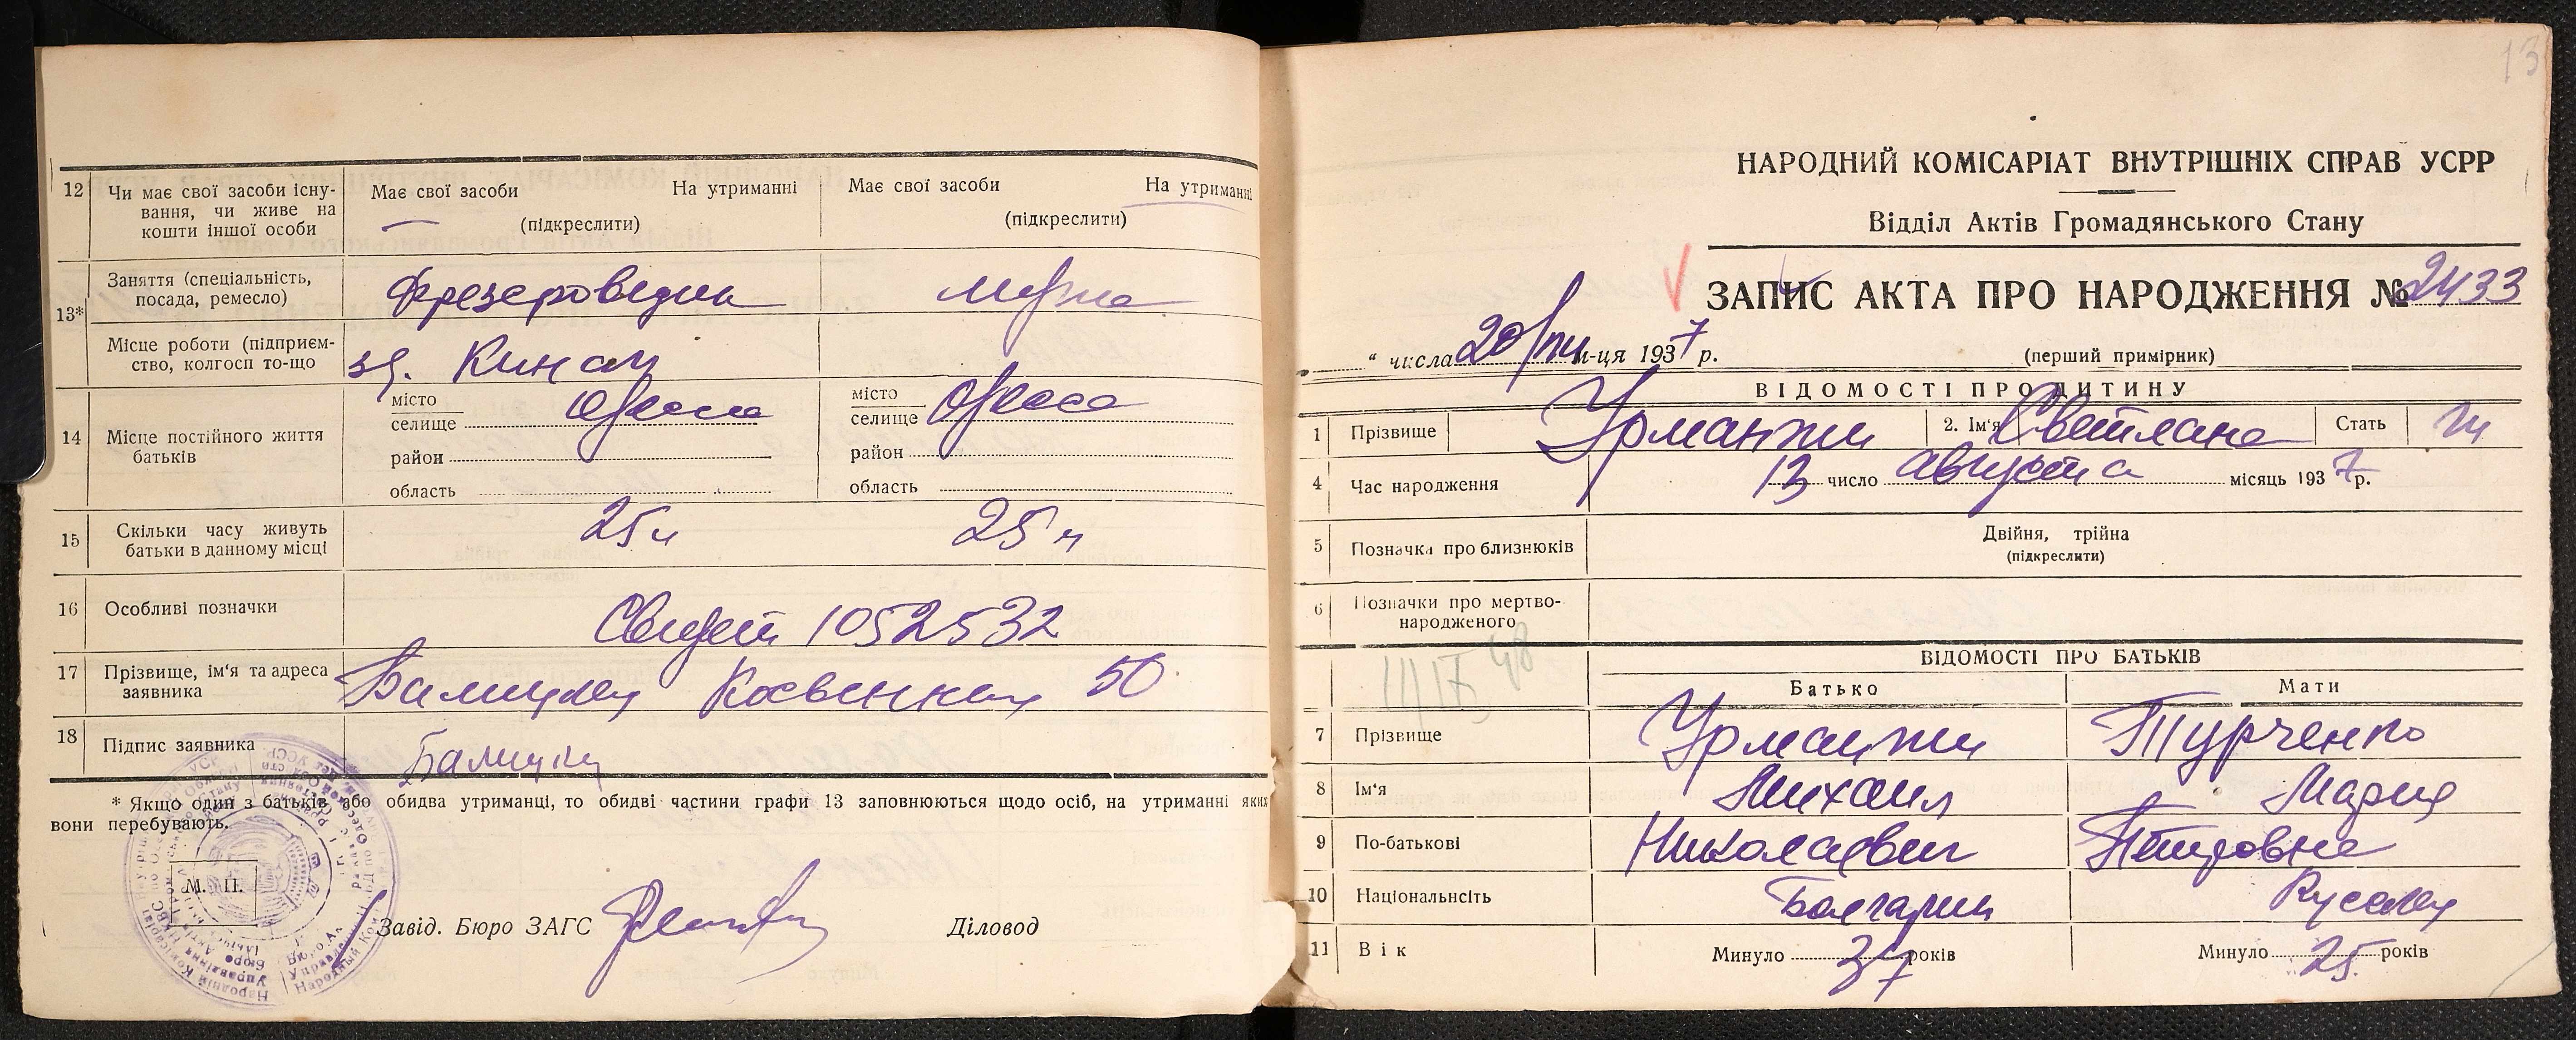 12 Чи має свої засоби існу-
вання, чи живе на
кошти іншої особи
Має свої засоби На утриманні
(підкреслити)
Має свої засоби На утриманні
(підкреслити)
13* Заняття (спеціальність,
посада, ремесло)
Місце роботи (підприєм-
ство, колгосп то-що
зд. Кинап
14 Місце постійного життя
батьків
місто
селище Одесса
район
область
місто
селище Одесса
район
область
15 Скільки часу живуть
батьки в данному місці
25 25
16 Особливі позначки
Свидет 1052532
17 Прізвище, ім'я та адреса
заявника
50
18 Підпис заявника
* Якщо один з батьків, або обидва утриманці, то обидві частини графи 13 заповнюються щодо осіб, на утриманні яких
вони перебувають.
М. П.
Завід. Бюро ЗАГС Діловод
13
НАРОДНИЙ КОМІСАРІАТ ВНУТРІШНІХ СПРАВ УСРР
Відділ Актів Громадянського Стану
ЗАПИС АКТА ПРО НАРОДЖЕННЯ № 2433
" числа 20 м-ця 1937 р. (перший примірник)
ВІДОМОСТІ ПРО ДИТИНУ
1 Прізвище Урманжи 2. Ім'я Светлана Стать
4 Час народження 13 число августа місяць 1937 р.
5 Позначка про близнюків
Двійня, трійня
(підкреслити)
6 Позначки про мертво-
народженого
ВІДОМОСТІ ПРО БАТЬКІВ
Батько Мати
7 Прізвище Урманжи Турченко
8 Ім'я Михаил Мария
9 По-батькові Николаевич Петровна
10 Національність Болгарин
11 Вік Минуло 37 років Минуло 25 років